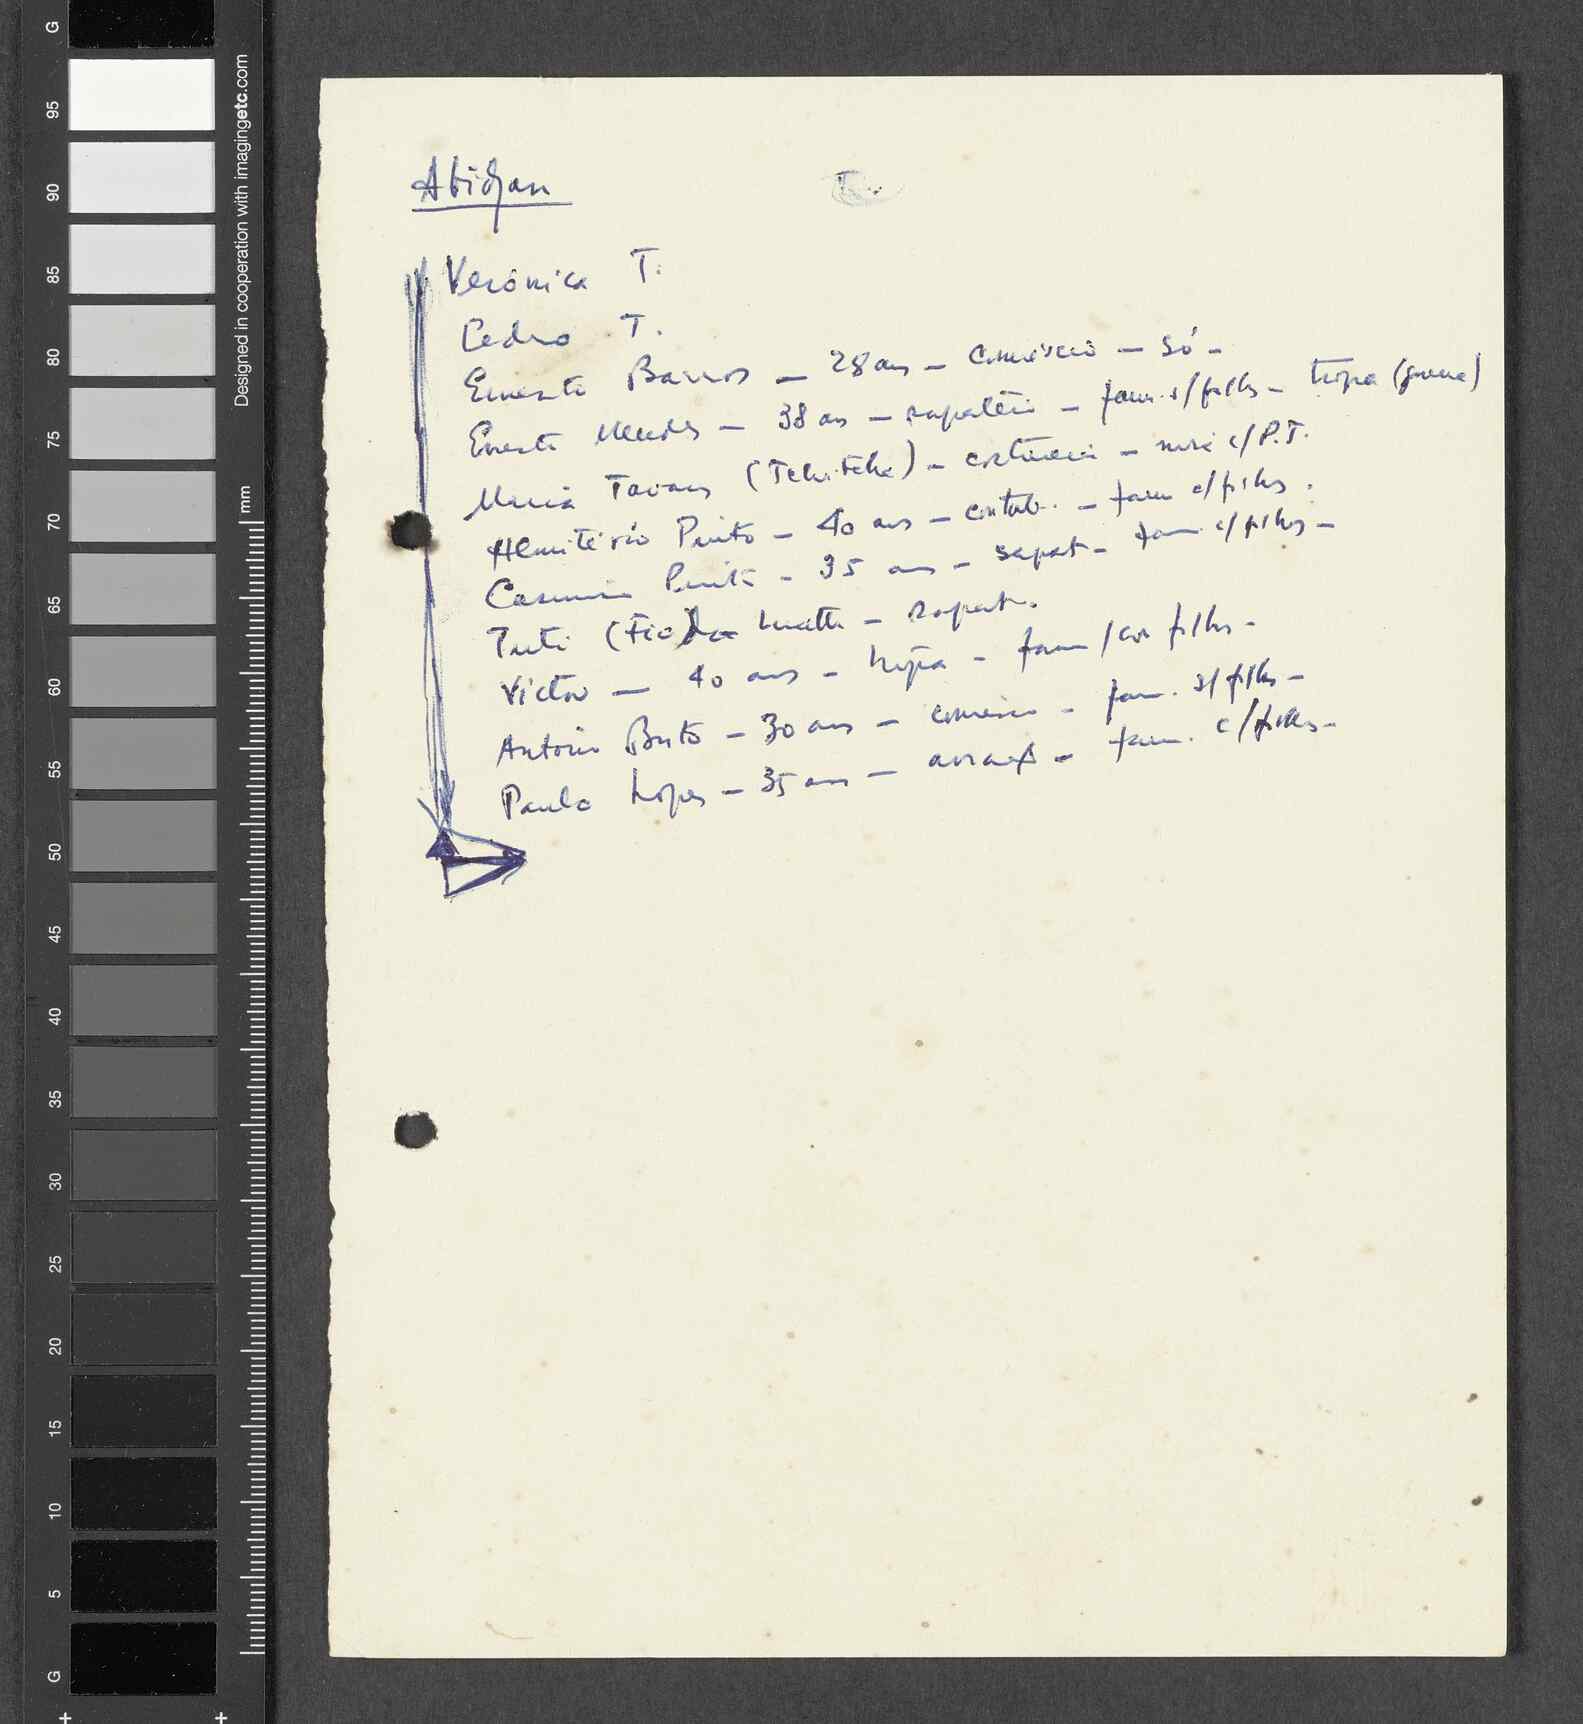 Abidjan
T.
Verónica T.
Pedro T.
Ernesto Barros — 28 anos — Comércio — só —
Ernesto Mendes — 38 anos — sapateiro — fam. s/filhos — tropa (guerra)
Maria Tavares (Tchitcha) — costureira — c/P.T.
Hemitério Pinto — 40 anos — contab. — fam c/filhos.
Casimiro Pinto — 35 anos — sapat — fam. c/filhos —
Tuti (Fio) da — sapat.
Victor — 40 anos — tropa — fam / com filhos —
Antonio Brito — 30 anos — comércio — fam. s/filhos —
Paulo Lopes — 35 anos — — fam. c/filhos —
Designed in cooperation with imagingetc.com
mm
G
95
90
85
80
75
70
65
60
55
50
45
40
35
30
25
20
15
10
5
G